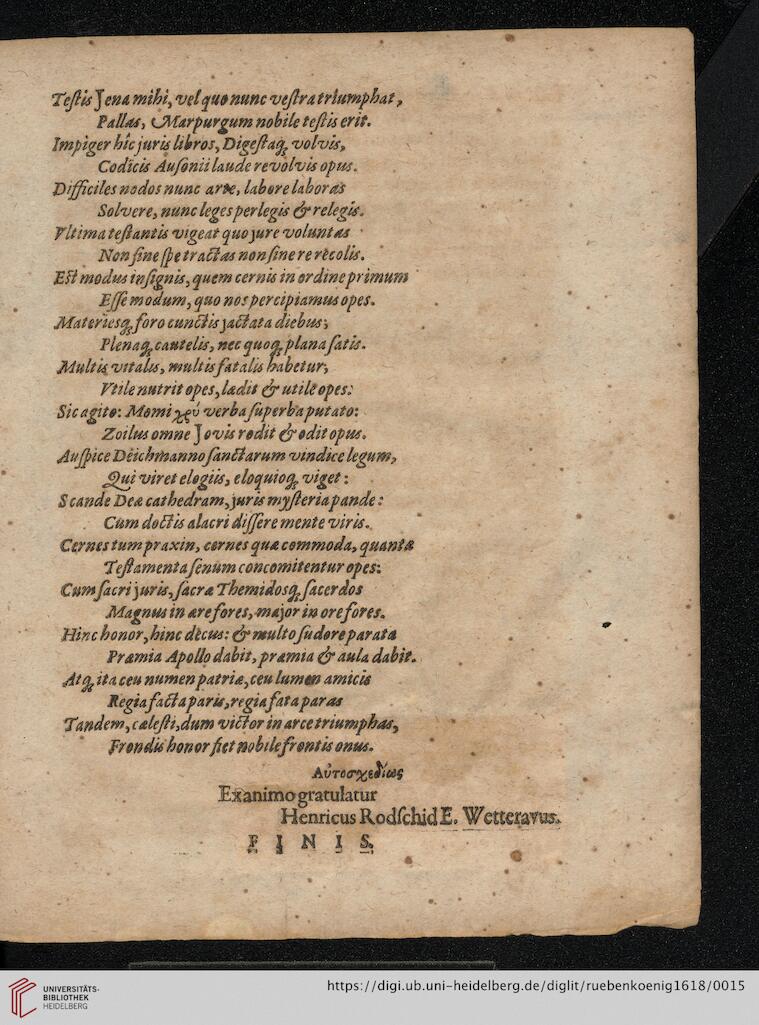 Teſtis Jena mihi, vel quo nunc veſtra triumphat,
Pallas, Marpurgum nobile teſtis erit.
Impiger hîc juris libros, Digeſtaq́; volvis,
Codicis Auſonii laude revolvis opus.
Difficiles nodos nunc arte, labore laboras
Solvere, nunc leges perlegis & relegis.
Vltima teſtantis vigeat quo jure voluntas
Non ſine ſpe tractas non ſine re recolis.
Eſt modus inſignis, quem cernis in ordine primum
Eſſe modum, quo nos percipiamus opes.
Materiesq́; foro cunctis jactata diebus;
Plenaq́; cautelis, nec quoq́; plana ſatis.
Multis vitalis, multis fatalis habetur;
Vtile nutrit opes, lædit & utile opes:
Sic agito: Momi χρύ verba ſuperba putato:
Zoilus omne Jovis rodit & odit opus.
Auſpice Deichmanno ſanctarum vindice legum,
Qui viret elogiis, eloquioq́; viget:
Scande Deæ cathedram, juris myſteria pande:
Cum doctis alacri diſſere mente viris.
Cernes tum praxin, cernes quæ commoda, quantæ
Teſtamenta ſenûm concomitentur opes:
Cum ſacri juris, ſacræ Themidosq́; ſacerdos
Magnus in ære fores, major in ore fores.
Hinc honor, hinc decus: & multo ſudore parata
Præmia Apollo dabit, præmia & aula dabit.
Atq́; ita ceu numen patriæ, ceu lumen amicis
Regia facta paris, regia fata paras
Tandem, cæleſti, dum victor in arce triumphas,
Frondis honor fiet nobile frontis onus.
Αὐτοσχεδίως
Ex animo gratulatur
Henricus Rodſchid E. Wetteravus.
FINIS.
UNIVERSITÄTS-
BIBLIOTHEK
HEIDELBERG
https://digi.ub.uni-heidelberg.de/diglit/ruebenkoenig1618/0015